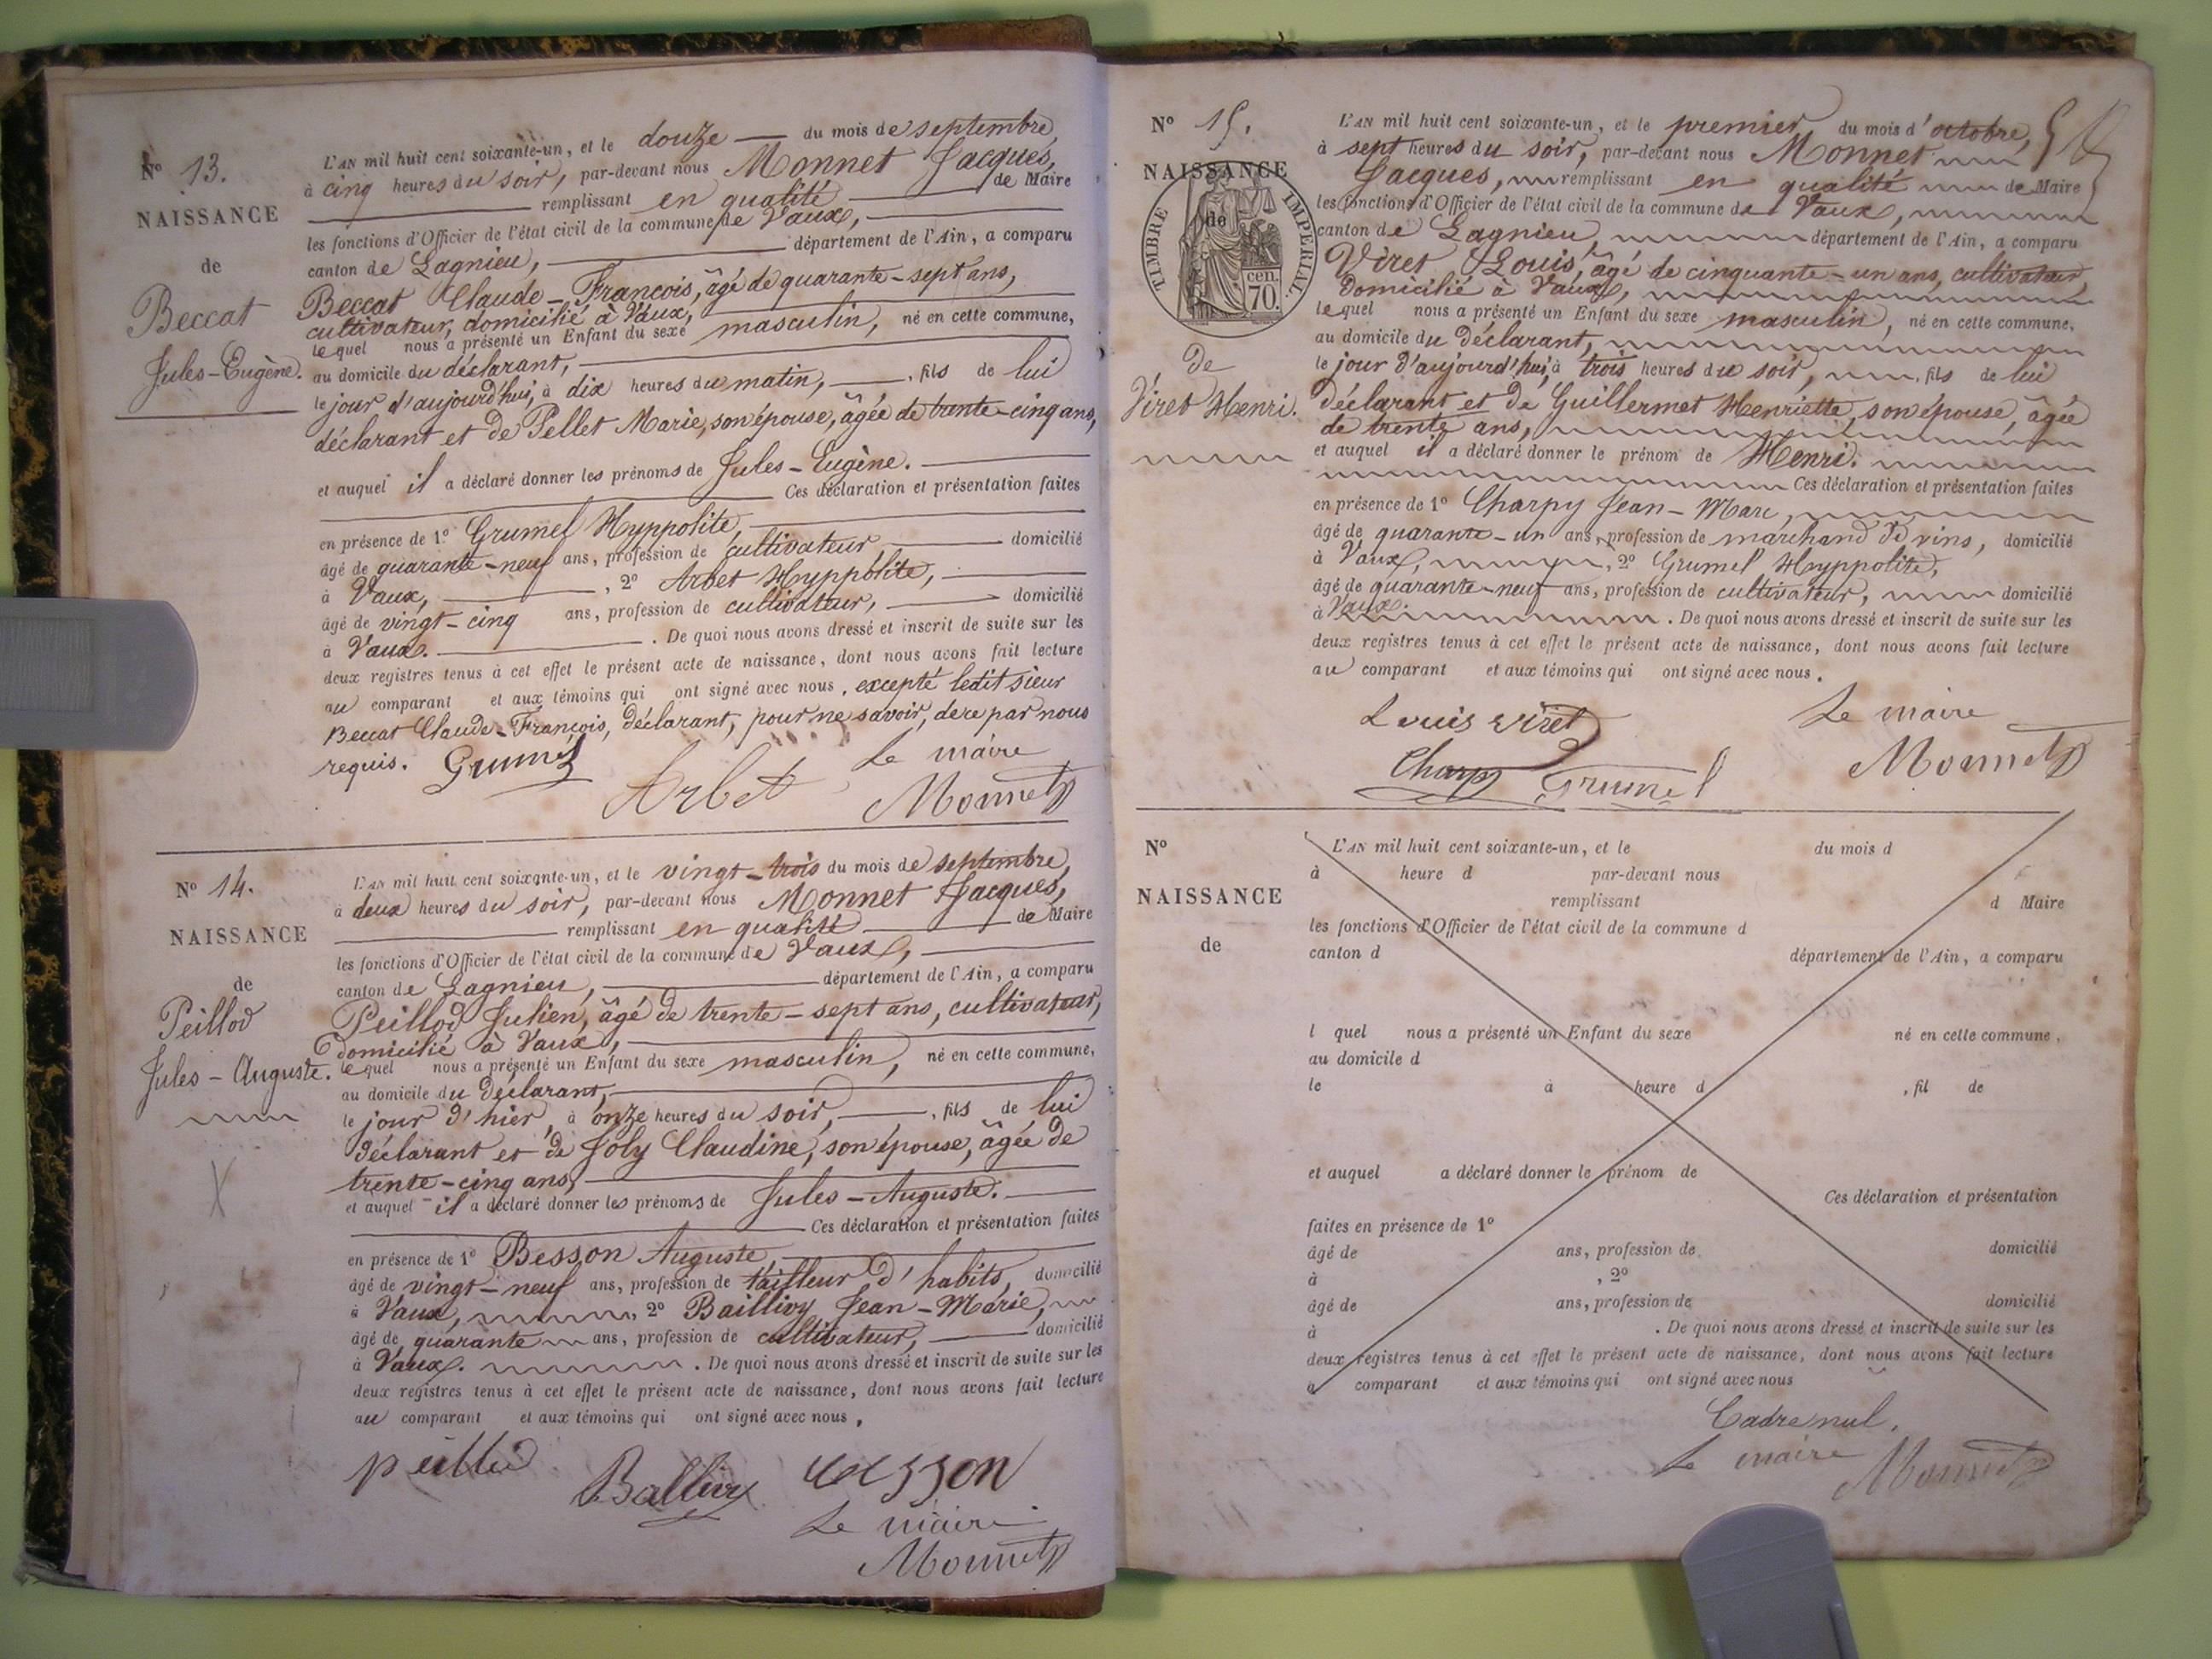 N° 13.
NAISSANCE
de
Beccat
Jules-Eugène.
L'AN mil huit cent soixante-un, et le douze du mois de septembre,
à cinq heures du soir, par-devant nous Monnet Jacques,
remplissant en qualité de Maire
les fonctions d'Officier de l'état civil de la commune de Vaux,
canton de Lagnieu, département de l'Ain, a comparu
Beccat Claude-François, âgé de quarante-sept ans,
cultivateur, domicilié à Vaux,
lequel nous a présenté un Enfant du sexe masculin, né en cette commune,
au domicile du déclarant,
le jour d'aujourd'hui, à dix heures du matin, , fils de lui
déclarant et de Pellet Marie, son épouse, âgée de trente-cinq ans,
et auquel il a déclaré donner les prénoms de Jules-Eugène.
Ces déclaration et présentation faites
en présence de 1° Grumel Hyppolite,
âgé de quarante-neuf ans, profession de cultivateur domicilié
à Vaux, , 2° Arbet Hyppolite,
âgé de vingt-cinq ans, profession de cultivateur, domicilié
à Vaux. . De quoi nous avons dressé et inscrit de suite sur les
deux registres tenus à cet effet le présent acte de naissance, dont nous avons fait lecture
au comparant et aux témoins qui ont signé avec nous, excepté ledit sieur
Beccat Claude-François, déclarant, pour ne savoir, de ce par nous
requis. Grumel
Arbet
Le maire
Monnet
N° 14.
NAISSANCE
de
Peillod
Jules-Auguste.
L'AN mil huit cent soixante-un, et le vingt-trois du mois de septembre,
à deux heures du soir, par-devant nous Monnet Jacques,
remplissant en qualité de Maire
les fonctions d'Officier de l'état civil de la commune de Vaux,
canton de Lagnieu, département de l'Ain, a comparu
Peillod Julien, âgé de trente-sept ans, cultivateur,
domicilié à Vaux,
lequel nous a présenté un Enfant du sexe masculin, né en cette commune,
au domicile du déclarant,
le jour d'hier, à onze heures du soir, , fils de lui
déclarant et de Joly Claudine, son épouse, âgée de
trente-cinq ans,
et auquel il a déclaré donner les prénoms de Jules-Auguste.
Ces déclaration et présentation faites
en présence de 1° Besson Auguste,
âgé de vingt-neuf ans, profession de tailleur d'habits, domicilié
à Vaux, , 2° Baillivy Jean-Marie,
âgé de quarante ans, profession de cultivateur, domicilié
à Vaux. . De quoi nous avons dressé et inscrit de suite sur les
deux registres tenus à cet effet le présent acte de naissance, dont nous avons fait lecture
au comparant et aux témoins qui ont signé avec nous,
Ballivy
Le maire
Monnet
N° 15.
NAISSANCE
TIMBRE IMPERIAL.
cen. 70.
de
de
Viret Henri.
L'AN mil huit cent soixante-un, et le premier du mois d'octobre,
à sept heures du soir, par-devant nous Monnet
Jacques, remplissant en qualité de Maire
les fonctions d'Officier de l'état civil de la commune de Vaux,
canton de Lagnieu, département de l'Ain, a comparu
Viret Louis, âgé de cinquante-un ans, cultivateur,
domicilié à Vaux,
lequel nous a présenté un Enfant du sexe masculin, né en cette commune,
au domicile du déclarant,
le jour d'aujourd'hui, à trois heures du soir, , fils de lui
déclarant et de Guillermet Henriette, son épouse, âgée
de trente ans,
et auquel il a déclaré donner le prénom de Henri.
Ces déclaration et présentation faites
en présence de 1° Charpy Jean-Marc,
âgé de quarante-un ans, profession de marchand de vins, domicilié
à Vaux, , 2° Grumel Hyppolite,
âgé de quarante-neuf ans, profession de cultivateur, domicilié
à Vaux. . De quoi nous avons dressé et inscrit de suite sur les
deux registres tenus à cet effet le présent acte de naissance, dont nous avons fait lecture
au comparant et aux témoins qui ont signé avec nous.
Louis Viret
Le maire
Charpy Grumel
Monnet
N°
NAISSANCE
de
L'AN mil huit cent soixante-un, et le du mois d
à heure d par-devant nous
remplissant d Maire
les fonctions d'Officier de l'état civil de la commune d
canton d département de l'Ain, a comparu
l quel nous a présenté un Enfant du sexe né en cette commune,
au domicile d
le à heure d , fil de
et auquel a déclaré donner le prénom de
Ces déclaration et présentation
faites en présence de 1°
âgé de ans, profession de domicilié
à , 2°
âgé de ans, profession de domicilié
à . De quoi nous avons dressé et inscrit de suite sur les
deux registres tenus à cet effet le présent acte de naissance, dont nous avons fait lecture
a comparant et aux témoins qui ont signé avec nous
Cadre nul.
Le maire
Monnet